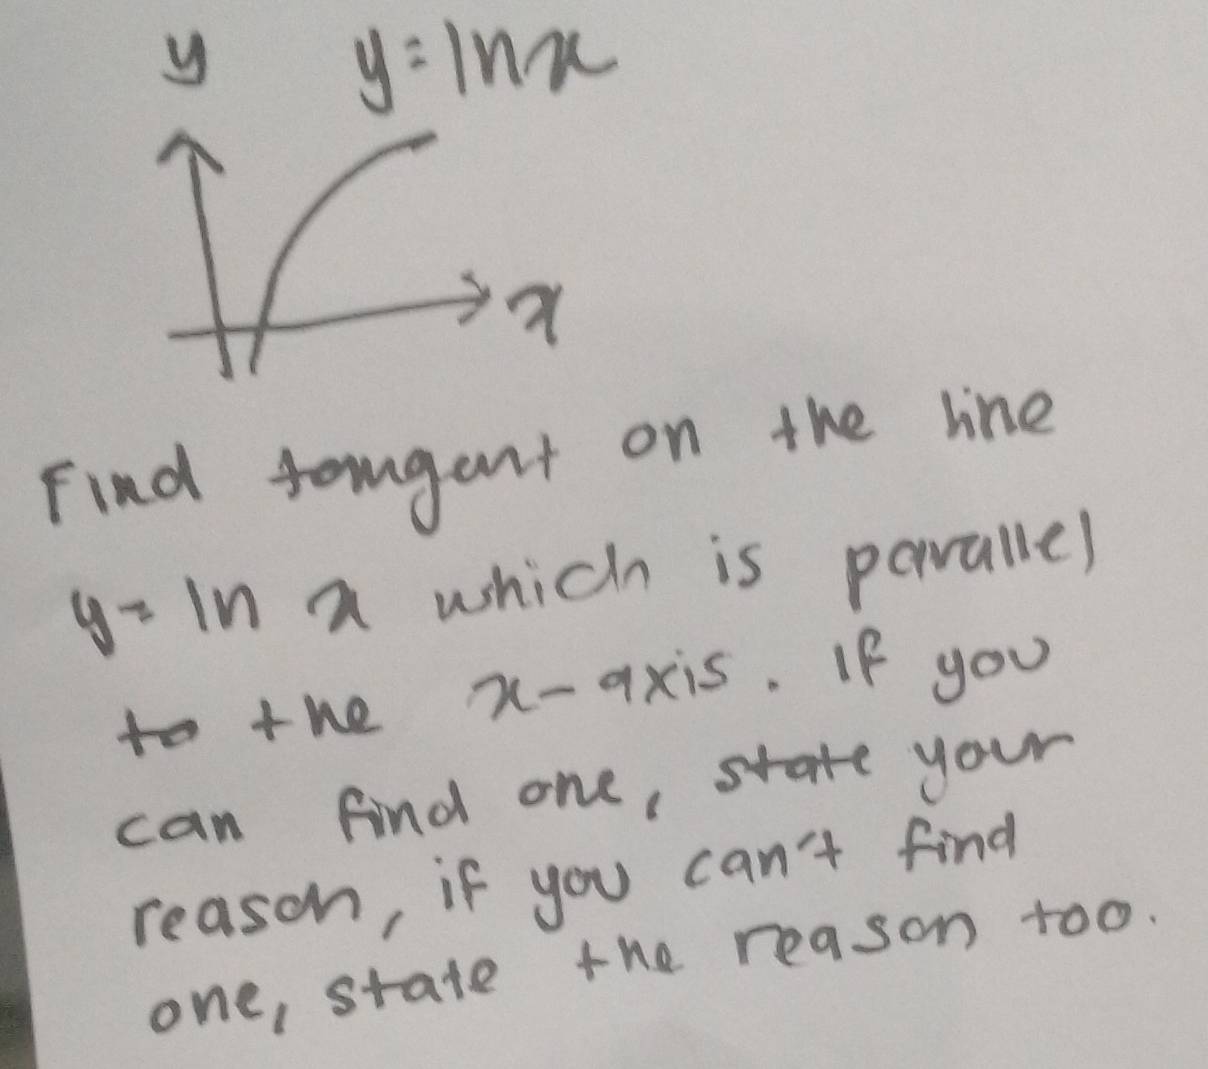 y y=lnx
x
Find tangent on the line
y=ln x which is parallel
to the x-axis. If you
can find one, state your
reason, if you can't find
one, state the reason too.